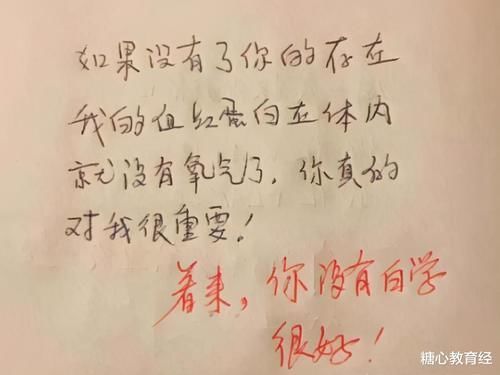 如果没有了你的存在
我的血红蛋白在体内
就没有氧气了，你真的
对我很重要！
看来，你没有白学
很好！
糖心教育经